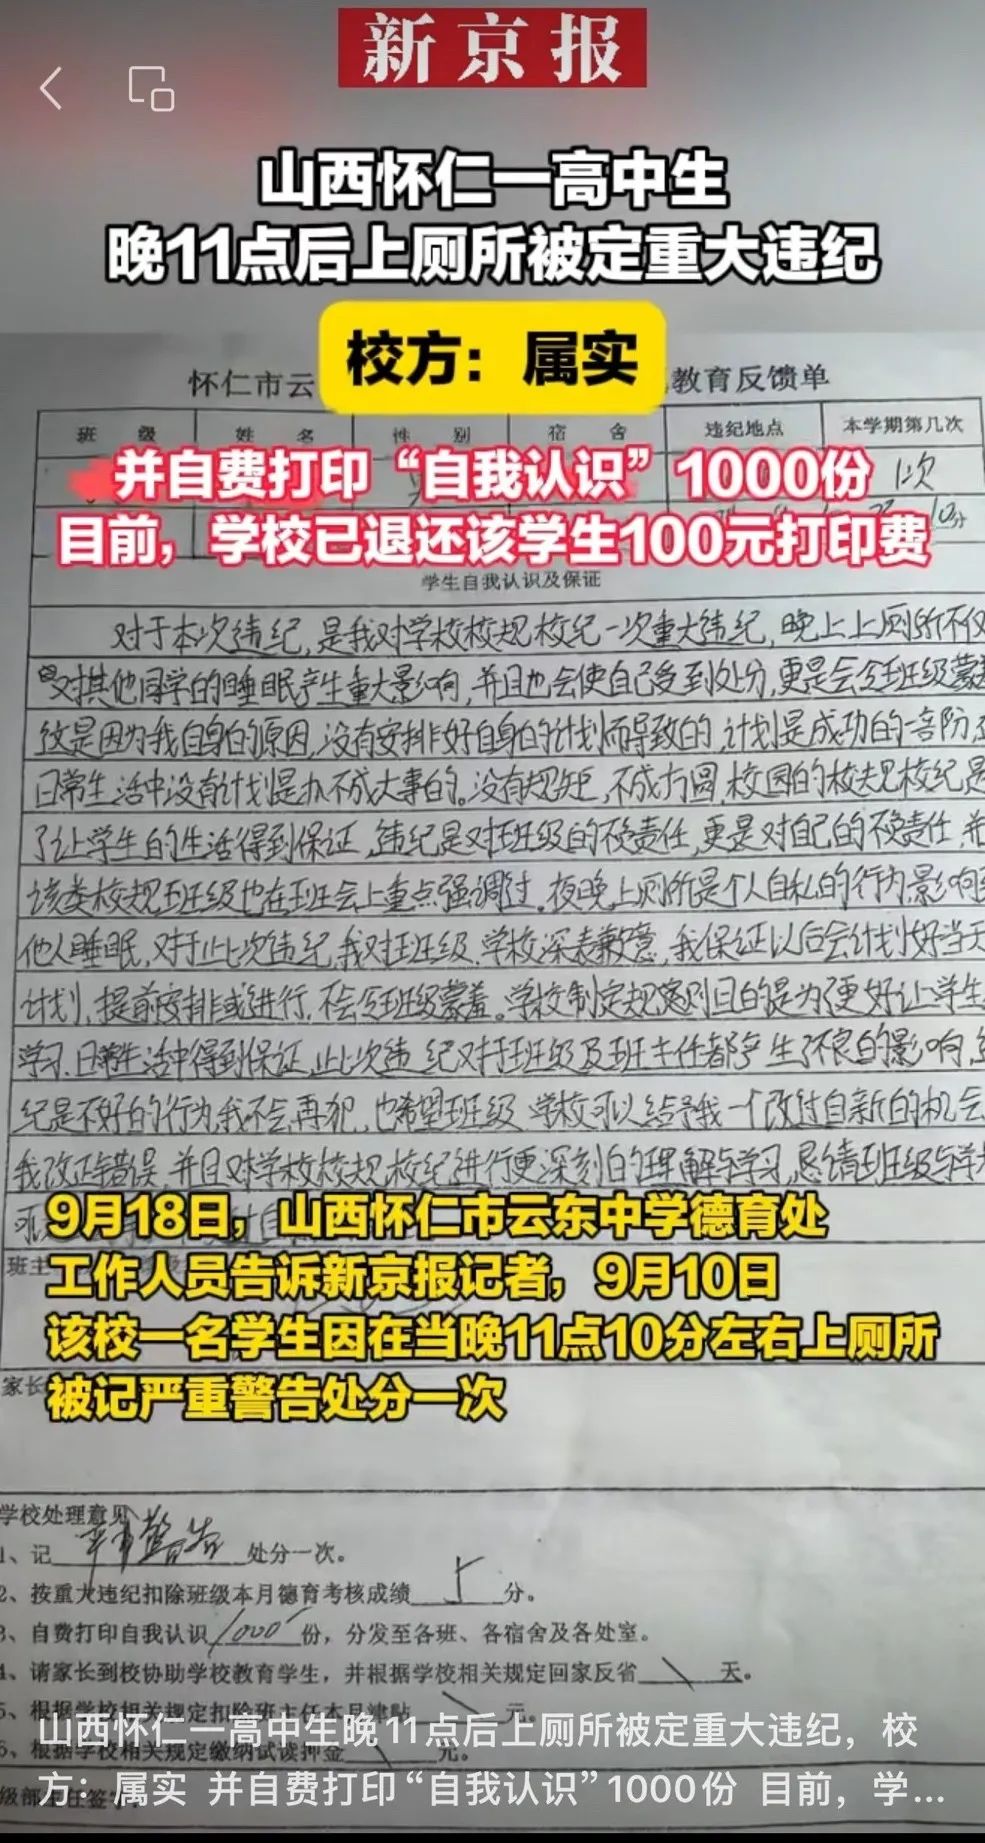 新京报
山西怀仁一高中生
晚11点后上厕所被定重大违纪
校方：属实
怀仁市云 教育反馈单
班 级 姓 名 性 别 宿 舍 违纪地点 本学期第几次
1次
并自费打印“自我认识”1000份
10分
目前，学校已退还该学生100元打印费
学生自我认识及保证
对于本次违纪，是我对学校校规校纪一次重大违纪，晚上上厕所不仅
对其他同学的睡眠产生重大影响，并且也会使自己受到处分，更是会令班级蒙羞
这是因为我自身的原因，没有安排好自身的计划而导致的，计划是成功的一部
日常生活中没有计划是办不成大事的。没有规矩，不成方圆，校园的校规校纪是
了让学生的生活得到保证，违纪是对班级的不负责任，更是对自己的不负责任，并
该类校规班级也在班会上重点强调过，夜晚上厕所是个人自私的行为，影响
他人睡眠，对于此次违纪，我对班级，学校深表歉意，我保证以后会计划好当天
计划，提前安排或进行，不会令班级蒙羞。学校制定规章则目的是为了更好让学生
学习，日常生活中得到保证，此次违纪对于班级及班主任都产生了不良的影响，
纪是不好的行为，我不会再犯，也希望班级 学校可以给予我一个改过自新的机会
我改正错误，并且对学校校规，校纪进行更深刻的理解与学习，恳请班级与学
9月18日，山西怀仁市云东中学德育处
班主
工作人员告诉新京报记者，9月10日
该校一名学生因在当晚11点10分左右上厕所
家长
被记严重警告处分一次
学校处理意见
1、记严重警告处分一次。
2、按重大违纪扣除班级本月德育考核成绩5分。
3、自费打印自我认识1000份，分发至各班、各宿舍及各处室。
4、请家长到校协助学校教育学生，并根据学校相关规定回家反省\天。
5、根据学校相关规定扣除班主任本月津贴\元。
6、根据学校相关规定缴纳试读押金\元。
山西怀仁一高中生晚11点后上厕所被定重大违纪，校
方：属实 并自费打印“自我认识”1000份 目前，学...
级部主任签字